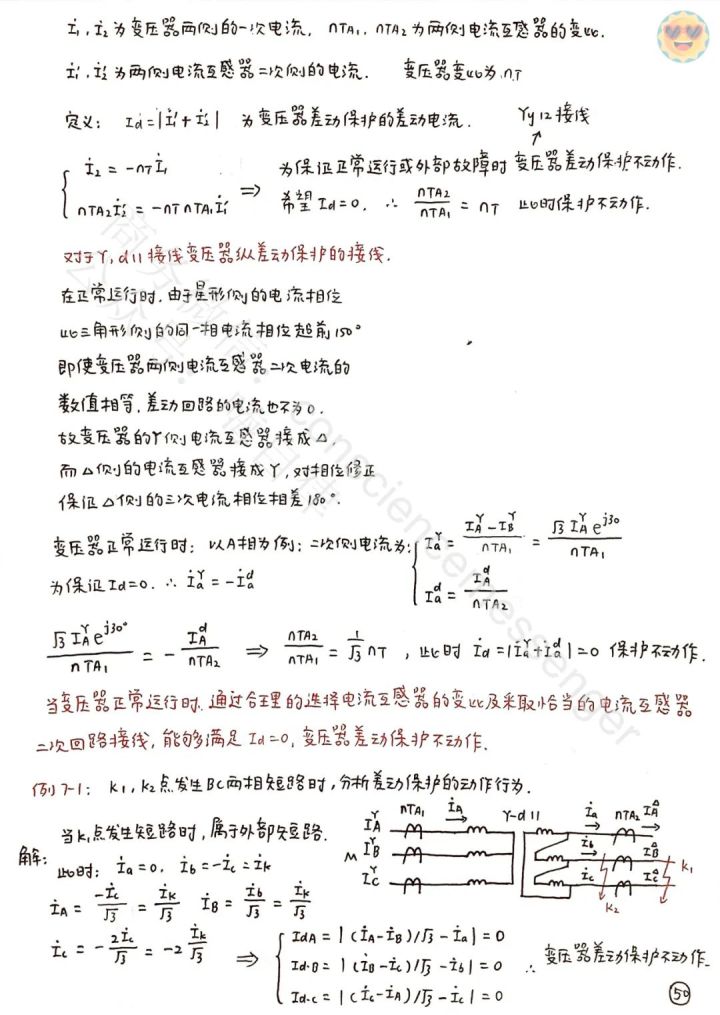 İ₁, İ₂ 为变压器两侧的一次电流, nTA₁, nTA₂ 为两侧电流互感器的变比.
İ₁′, İ₂′ 为两侧电流互感器二次侧的电流. 变压器变比为 nT
定义: Id = |İ₁′ + İ₂′| 为变压器差动保护的差动电流. Yy12接线
{ İ₂ = -nTİ₁
nTA₂İ₂′ = -nT nTA₁İ₁′ ⇒ 为保证正常运行或外部故障时变压器差动保护不动作.
希望 Id=0, ∴ nTA₂/nTA₁ = nT 此时保护不动作.
对于Y, d11接线变压器纵差动保护的接线.
在正常运行时, 由于星形侧的电流相位
比三角形侧的同一相电流相位超前150°
即使变压器两侧电流互感器二次电流的
数值相等, 差动回路的电流也不为0.
故变压器的Y侧电流互感器接成△,
而△侧的电流互感器接成Y, 对相位修正
保证△侧的二次电流相位相差180°.
变压器正常运行时: 以A相为例: 二次侧电流为: { İₐʸ = (İ_Aʸ - İ_Bʸ)/nTA₁ = √3 İ_Aʸ e^(j30)/nTA₁
为保证Id=0. ∴ İₐʸ = -İₐᵈ İₐᵈ = İ_Aᵈ/nTA₂
√3 İ_Aʸ e^(j30°)/nTA₁ = - İ_Aᵈ/nTA₂ ⇒ nTA₂/nTA₁ = 1/√3 nT, 此时 İd = |İₐʸ + İₐᵈ| = 0 保护不动作.
当变压器正常运行时, 通过合理的选择电流互感器的变比及采取恰当的电流互感器
二次回路接线, 能够满足 Id=0, 变压器差动保护不动作.
例7-1: K₁, K₂点发生BC两相短路时, 分析差动保护的动作行为.
解: 当K₁点发生短路时, 属于外部短路.
此时: İa=0, İb=-İc=İk
İA = -İc/√3 = İk/√3 İB = İb/√3 = İk/√3
İc = -2İc/√3 = -2 İk/√3 ⇒ { IdA = |(İA-İB)/√3 - İa| = 0
Id·B = |(İB-İc)/√3 - İb| = 0 ∴ 变压器差动保护不动作.
Id·c = |(İc-İA)/√3 - İc| = 0
nTA₁ İA Y-d11 İa nTA₂ İ_A^△
İ_Aʸ
M İ_Bʸ İb İ_B^△ K₁
İ_Cʸ İc İ_C^△
K₂
50
商务微信: consciencemessenger